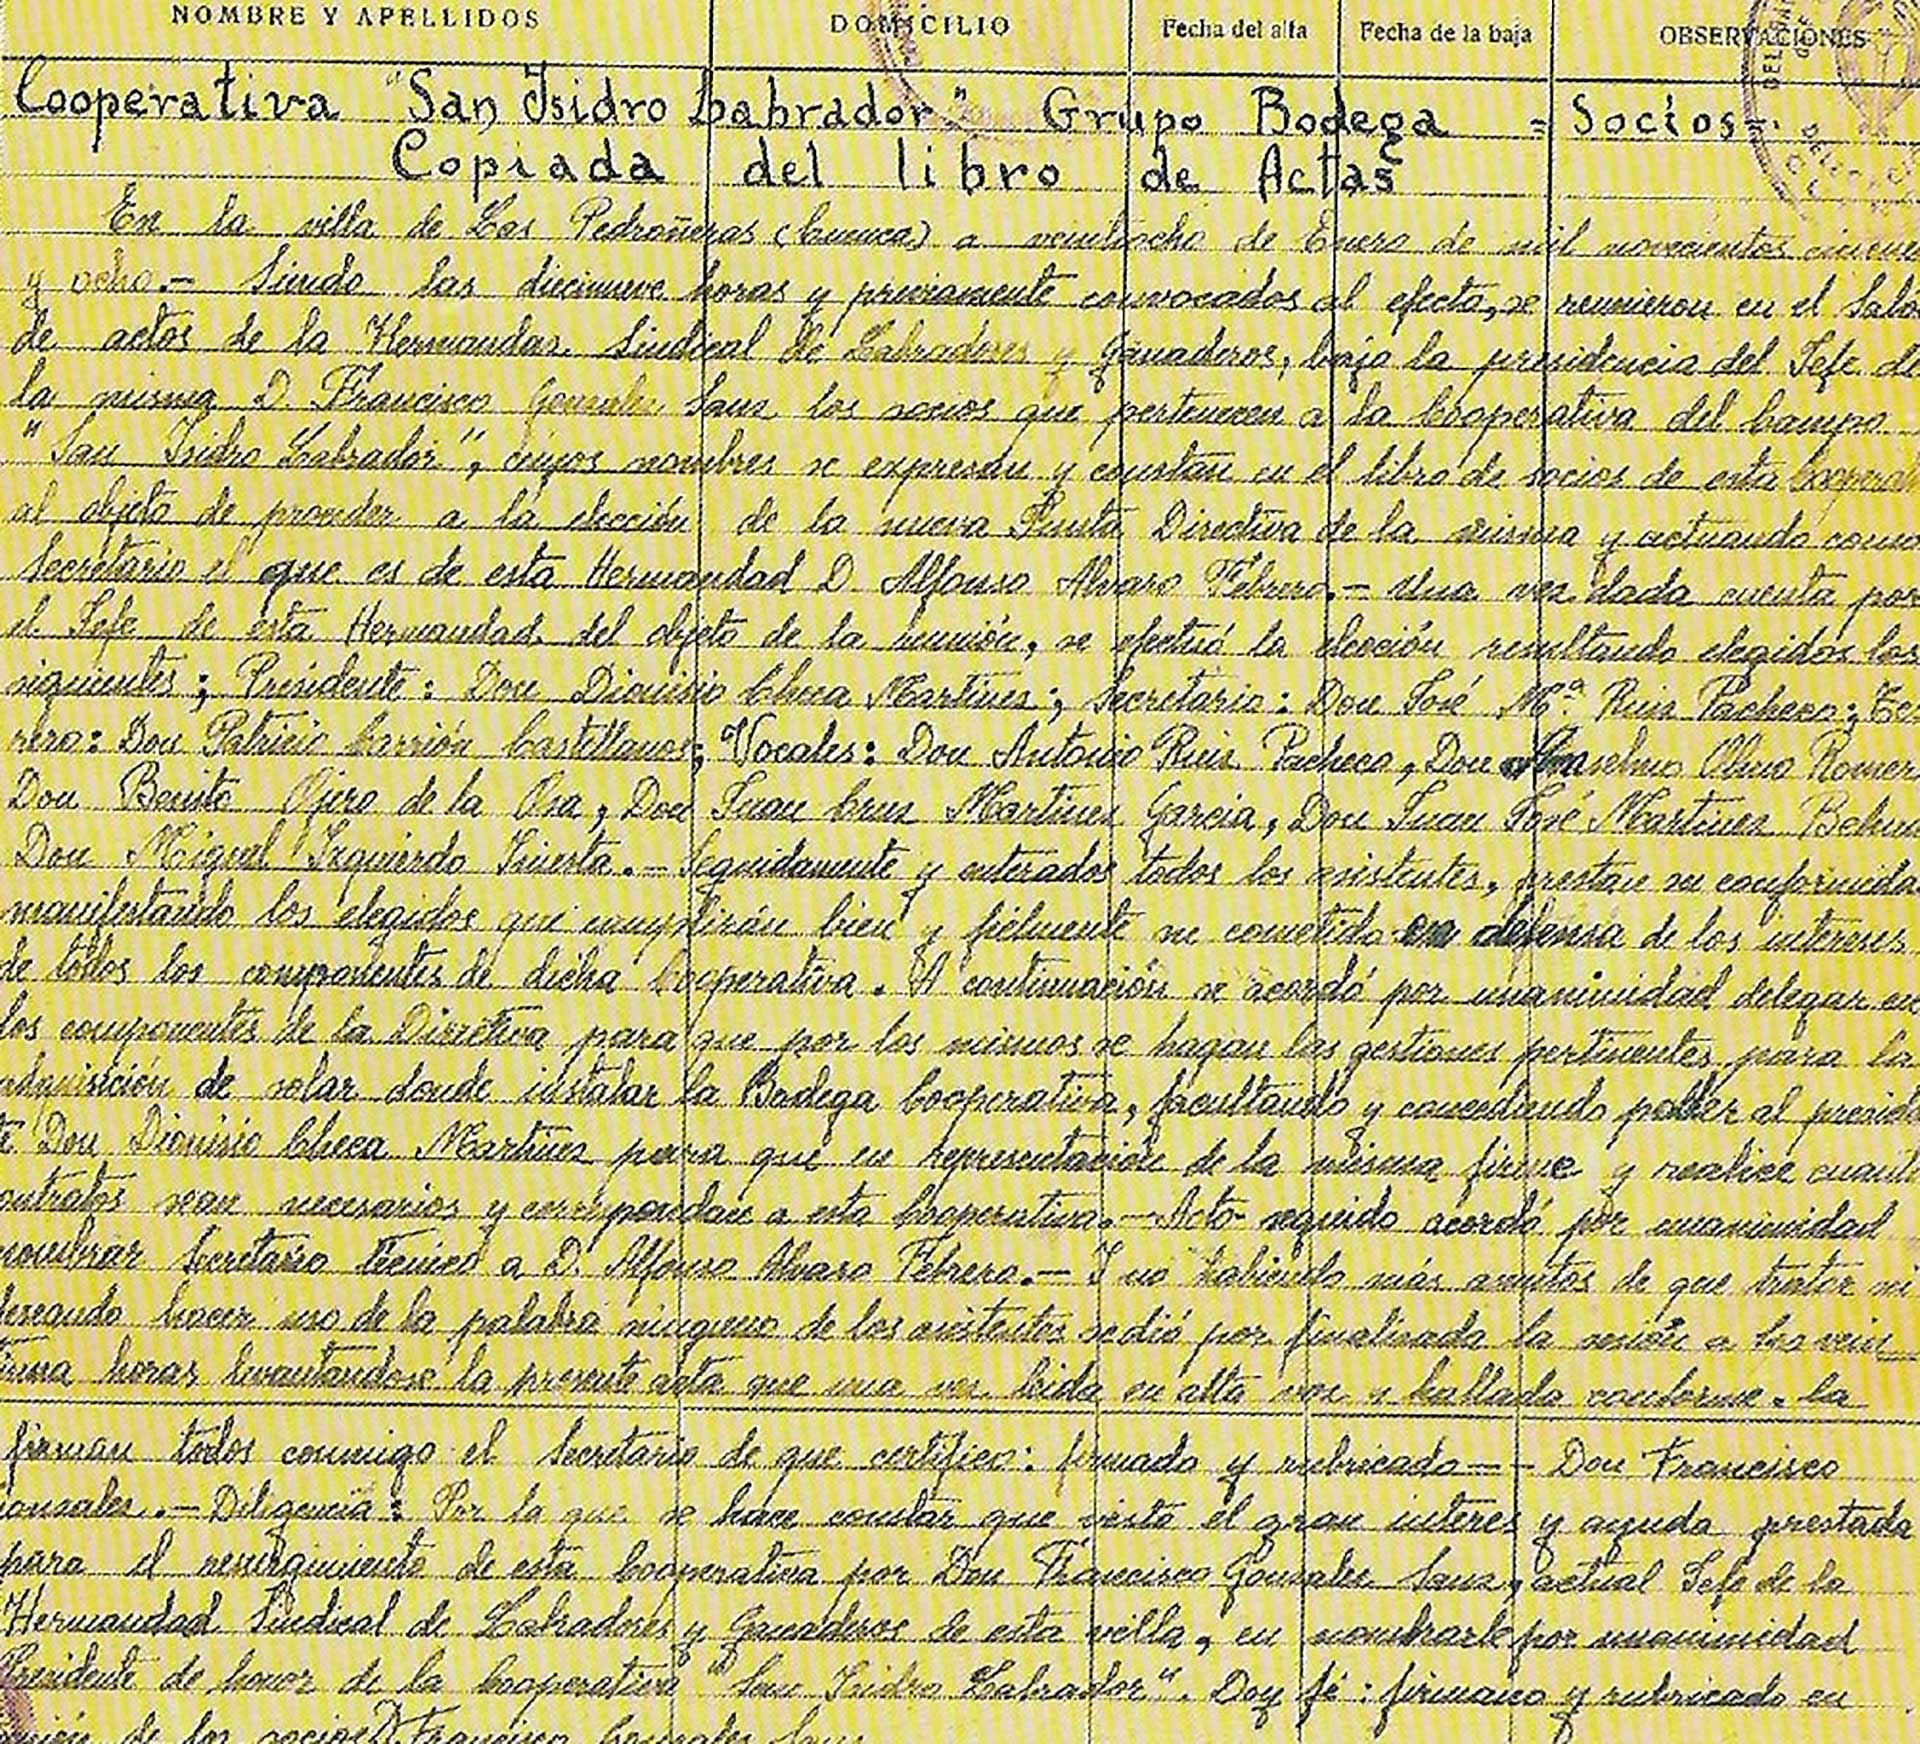 NOMBRE Y APELLIDOS DOMICILIO Fecha del alta Fecha de la baja OBSERVACIONES
Cooperativa "San Isidro Labrador" Grupo Bodega - Socios -.
Copiada del libro de Actas
En la villa de Las Pedroñeras (Cuenca) a veintiocho de Enero de mil novecientos cincuen
y ocho.- Siendo las diecinueve horas y previamente convocados al efecto, se reunieron en el Salo
de actos de la Hermandad Sindical de Labradores y Ganaderos, bajo la presidencia del Jefe de
la misma D. Francisco Gonzalez Sanz los socios que pertenecen a la Cooperativa del Campo
"San Isidro Labrador", cuyos nombres se expresan y constan en el libro de socios de esta Cooperati
al objeto de proceder a la elección de la nueva Junta Directiva de la misma y actuando como
Secretario el que es de esta Hermandad D. Alfonso Alvaro Febrero.- Una vez dada cuenta por
el Jefe de esta Hermandad del objeto de la reunión, se efectuó la elección resultando elegidos los
siguientes; Presidente: Don Dionisio Checa Martinez; Secretario: Don José Mª. Ruiz Pacheco; Teso
rero: Don Patricio Carrión Castellanos; Vocales: Don Antonio Ruiz Pacheco, Don Anselmo Olmo Romer
Don Benito Ojero de la Osa, Don Juan Cruz Martinez Garcia, Don Juan José Martinez
Don Miguel Izquierdo Iniesta.- Seguidamente y enterados todos los asistentes, prestan su conformida
manifestando los elegidos que cumplirán bien y fielmente su cometido en defensa de los intereses
de todos los componentes de dicha Cooperativa. A continuación se acordó por unanimidad delegar en
los componentes de la Directiva para que por los mismos se hagan las gestiones pertinentes para la
adquisición de solar donde instalar la Bodega Cooperativa, facultando y concediendo poder al presiden
te Don Dionisio Checa Martinez para que en representación de la misma firme y realice cuanto
contratos sean necesarios y correspondan a esta Cooperativa.- Acto seguido acordó por unanimidad
nombrar Secretario Técnico a D. Alfonso Alvaro Febrero.- Y no habiendo más asuntos de que tratar ni
deseando hacer uso de la palabra ninguno de los asistentes se dió por finalizada la sesión a las vein
tiuna horas levantandose la presente acta que una vez leida en alta voz y hallada conforme. la
firman todos conmigo el Secretario de que certifico: firmado y rubricado -- Don Francisco
Gonzalez.- Diligencia: Por la que se hace constar que visto el gran interes y ayuda prestada
para el resurgimiento de esta Cooperativa por Don Francisco Gonzalez Sanz, actual Jefe de la
Hermandad Sindical de Labradores y Ganaderos de esta villa, en nombrarle por unanimidad
Presidente de honor de la Cooperativa "San Isidro Labrador". Doy fé: firmano y rubricado en
unión de los socios D. Francisco Gonzalez Sanz